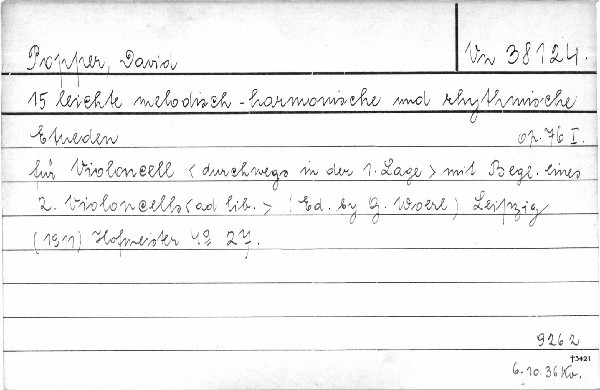 Popper, David
Vn 38124.
15 leichte melodisch-harmonische und rhythmische
Etueden op. 76 I.
für Violoncell <durchwegs in der 1. Lage> mit Begl. eines
2. Violoncells <ad lib.> (Ed. by G. Woerl) Leipzig
(1911) Hofmeister 4º 27.
9262
†3421
6.10.36 Kv.